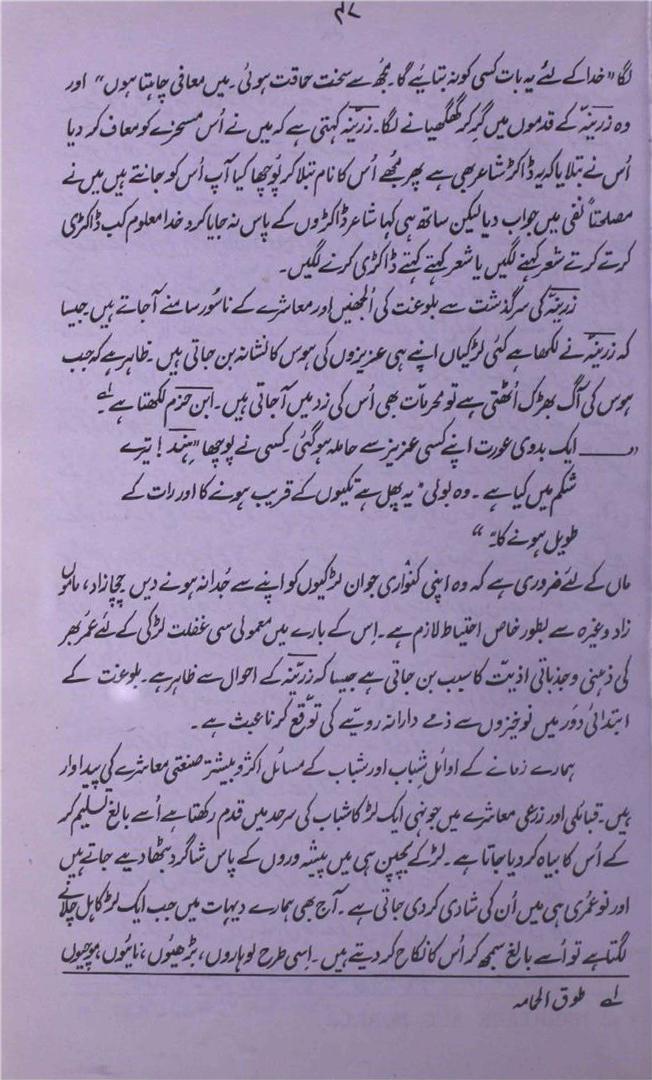 ۴۷
لگا "خدا کے لئے یہ بات کسی کو نہ بتائیے گا۔ مجھ سے سخت حماقت ہوئی۔ میں معافی چاہتا ہوں" اور
وہ زرینہ کے قدموں میں گر کر گھگھیانے لگا۔ زرینہ کہتی ہے کہ میں نے اُس مسخرے کو معاف کر دیا
اُس نے بتلایا کہ یہ ڈاکٹر شاعر بھی ہے پھر مجھے اُس کا نام بتلا کر پُوچھا کیا آپ اُس کو جانتے ہیں میں نے
مصلحتاً نفی میں جواب دیا لیکن ساتھ ہی کہا شاعر ڈاکٹروں کے پاس نہ جایا کرو خدا معلوم کب ڈاکٹری
کرتے کرتے شعر کہنے لگیں یا شعر کہتے کہتے ڈاکٹری کرنے لگیں۔
زرینہ کی سرگذشت سے بلوغت کی اُلجھنیں اور معاشرے کے ناسُور سامنے آجاتے ہیں جیسا
کہ زرینہ نے لکھا ہے کئی لڑکیاں اپنے ہی عزیزوں کی ہوس کا نشانہ بن جاتی ہیں۔ ظاہر ہے کہ جب
ہوس کی آگ بھڑک اُٹھتی ہے تو محرمات بھی اُس کی زد میں آجاتی ہیں۔ ابن حزم لکھتا ہے لے
"—— ایک بدوی عورت اپنے کسی عزیز سے حاملہ ہو گئی۔ کسی نے پوچھا "ہند! تیرے
شکم میں کیا ہے۔ وہ بولی "یہ پھل ہے تکیوں کے قریب ہونے کا اور رات کے
طویل ہونے کا۔"
ماں کے لئے ضروری ہے کہ وہ اپنی کنواری جوان لڑکیوں کو اپنے سے جُدا نہ ہونے دیں چچا زاد، ماموں
زاد وغیرہ سے بطور خاص احتیاط لازم ہے۔ اِس کے بارے میں معمولی سی غفلت لڑکی کے لئے عمر بھر
کی ذہنی و جذباتی اذیت کا سبب بن جاتی ہے جیسا کہ زرینہ کے احوال سے ظاہر ہے۔ بلوغت کے
ابتدائی دَور میں نوخیزوں سے ذمے دارانہ رویّے کی توقع کرنا عبث ہے۔
ہمارے زمانے کے اوائلِ شباب اور شباب کے مسائل اکثر و بیشتر صنعتی معاشرے کی پیداوار
ہیں۔ قبائلی اور زرعی معاشرے میں جونہی ایک لڑکا شباب کی سرحد میں قدم رکھتا ہے اُسے بالغ تسلیم کر
کے اُس کا بیاہ کر دیا جاتا ہے۔ لڑکے بچپن ہی میں پیشہ وروں کے پاس شاگرد بٹھا دیے جاتے ہیں
اور نوعمری ہی میں اُن کی شادی کر دی جاتی ہے۔ آج بھی ہمارے دیہات میں جب ایک لڑکا ہل چلانے
لگتا ہے تو اُسے بالغ سمجھ کر اُس کا نکاح کر دیتے ہیں۔ اِسی طرح لوہاروں، بڑھیوں، نائیوں، موچیوں
لے طوق الحمامہ